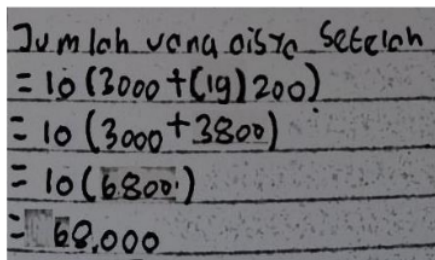 Jumlah uang disya Setelah
= 10 (3000 + (19) 200)
= 10 (3000 + 3800)
= 10 (6800)
= 68.000